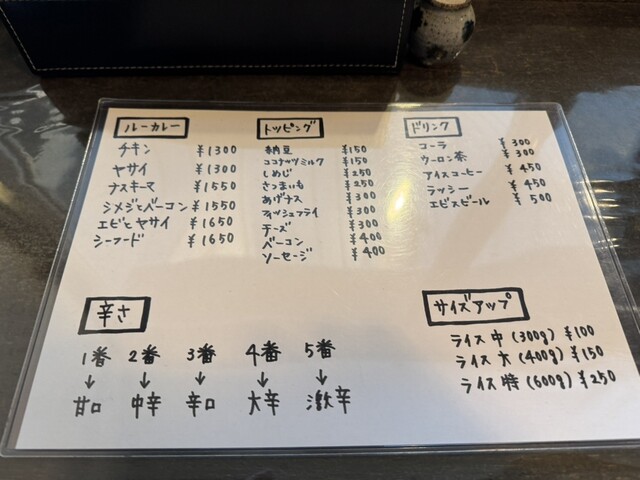 ルーカレー
チキン ¥1300
ヤサイ ¥1300
ナスキーマ ¥1550
シメジとベーコン ¥1550
エビとヤサイ ¥1650
シーフード ¥1650
トッピング
納豆 ¥150
ココナッツミルク ¥150
しめじ ¥250
さつまいも ¥250
あげナス ¥300
フィッシュフライ ¥300
チーズ ¥300
ベーコン ¥400
ソーセージ ¥400
ドリンク
コーラ ¥300
ウーロン茶 ¥300
アイスコーヒー ¥450
ラッシー ¥450
エビスビール ¥500
辛さ
1番 2番 3番 4番 5番
↓ ↓ ↓ ↓ ↓
甘口 中辛 辛口 大辛 激辛
サイズアップ
ライス 中 (300g) ¥100
ライス 大 (400g) ¥150
ライス 特 (600g) ¥250